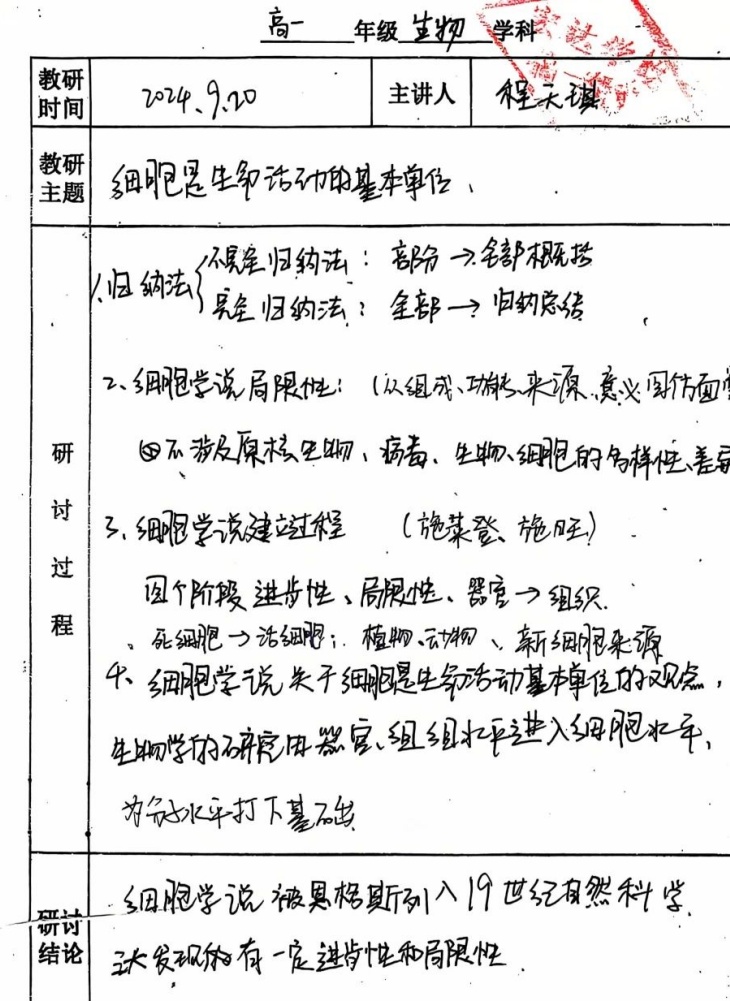 高一 年级 生物 学科
教研时间 2024.9.20 主讲人 程天琪
教研主题 细胞是生命活动的基本单位、
研讨过程
1、归纳法{不完全归纳法：部分→全部概括
完全归纳法：全部→归纳总结
2、细胞学说局限性：（从组成、功能、来源、意义四方面
不涉及原核生物、病毒、生物、细胞的多样性、差异
3、细胞学说建立过程 （施莱登、施旺）
四个阶段 进步性、局限性、器官→组织.
死细胞→活细胞；植物、动物、新细胞来源
4、细胞学说关于细胞是生命活动基本单位的观点，
生物学的研究由器官、组组水平进入细胞水平，
为分水平打下基础
研讨结论
细胞学说被恩格斯列入19世纪自然科学
三大发现 有一定进步性和局限性